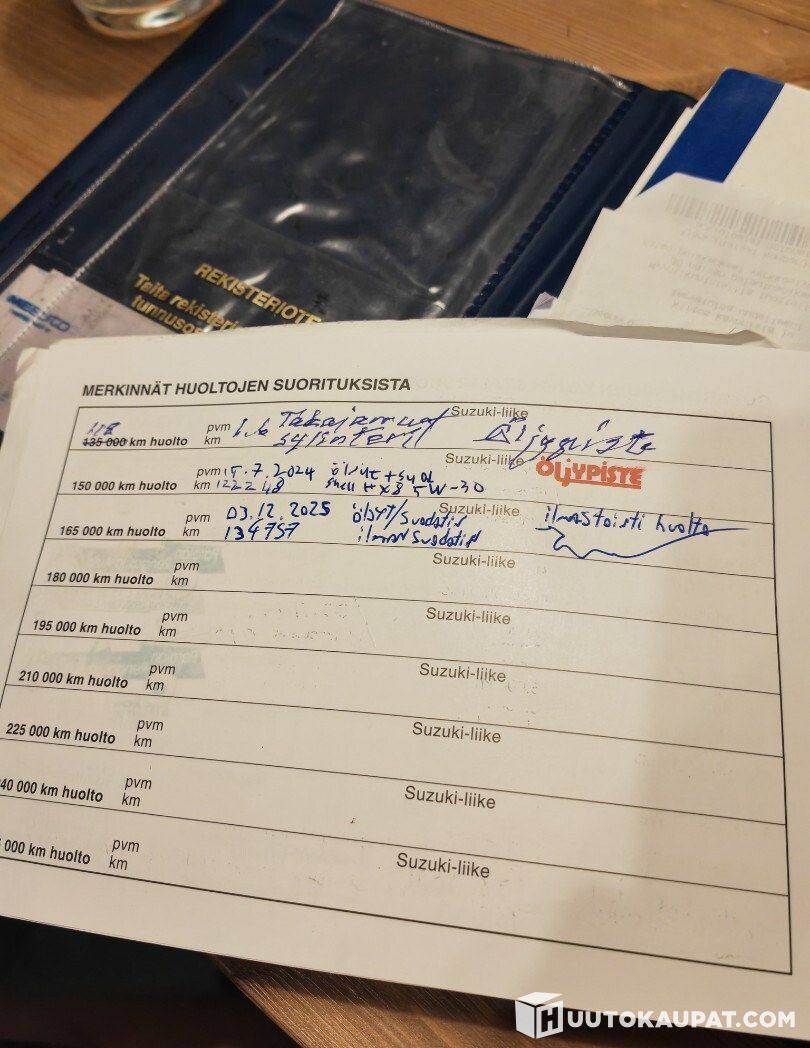 REKISTERIOTE
Taita rekisteri
tunnusos
MERKINNÄT HUOLTOJEN SUORITUKSISTA
118
135 000 km huolto pvm km 1.6 Takajarrut sylinterit Suzuki-liike Öljypiste
150 000 km huolto pvm 15.7.2024 öljyt + suod Suzuki-liike ÖLJYPISTE
km 122248 Shell HX8 5W-30
165 000 km huolto pvm 03.12.2025 öljyt/suodatin Suzuki-liike ilmastointi huolto
km 134757 ilmansuodatin
180 000 km huolto pvm km Suzuki-liike
195 000 km huolto pvm km Suzuki-liike
210 000 km huolto pvm km Suzuki-liike
225 000 km huolto pvm km Suzuki-liike
40 000 km huolto pvm km Suzuki-liike
000 km huolto pvm km Suzuki-liike
HUUTOKAUPAT.COM